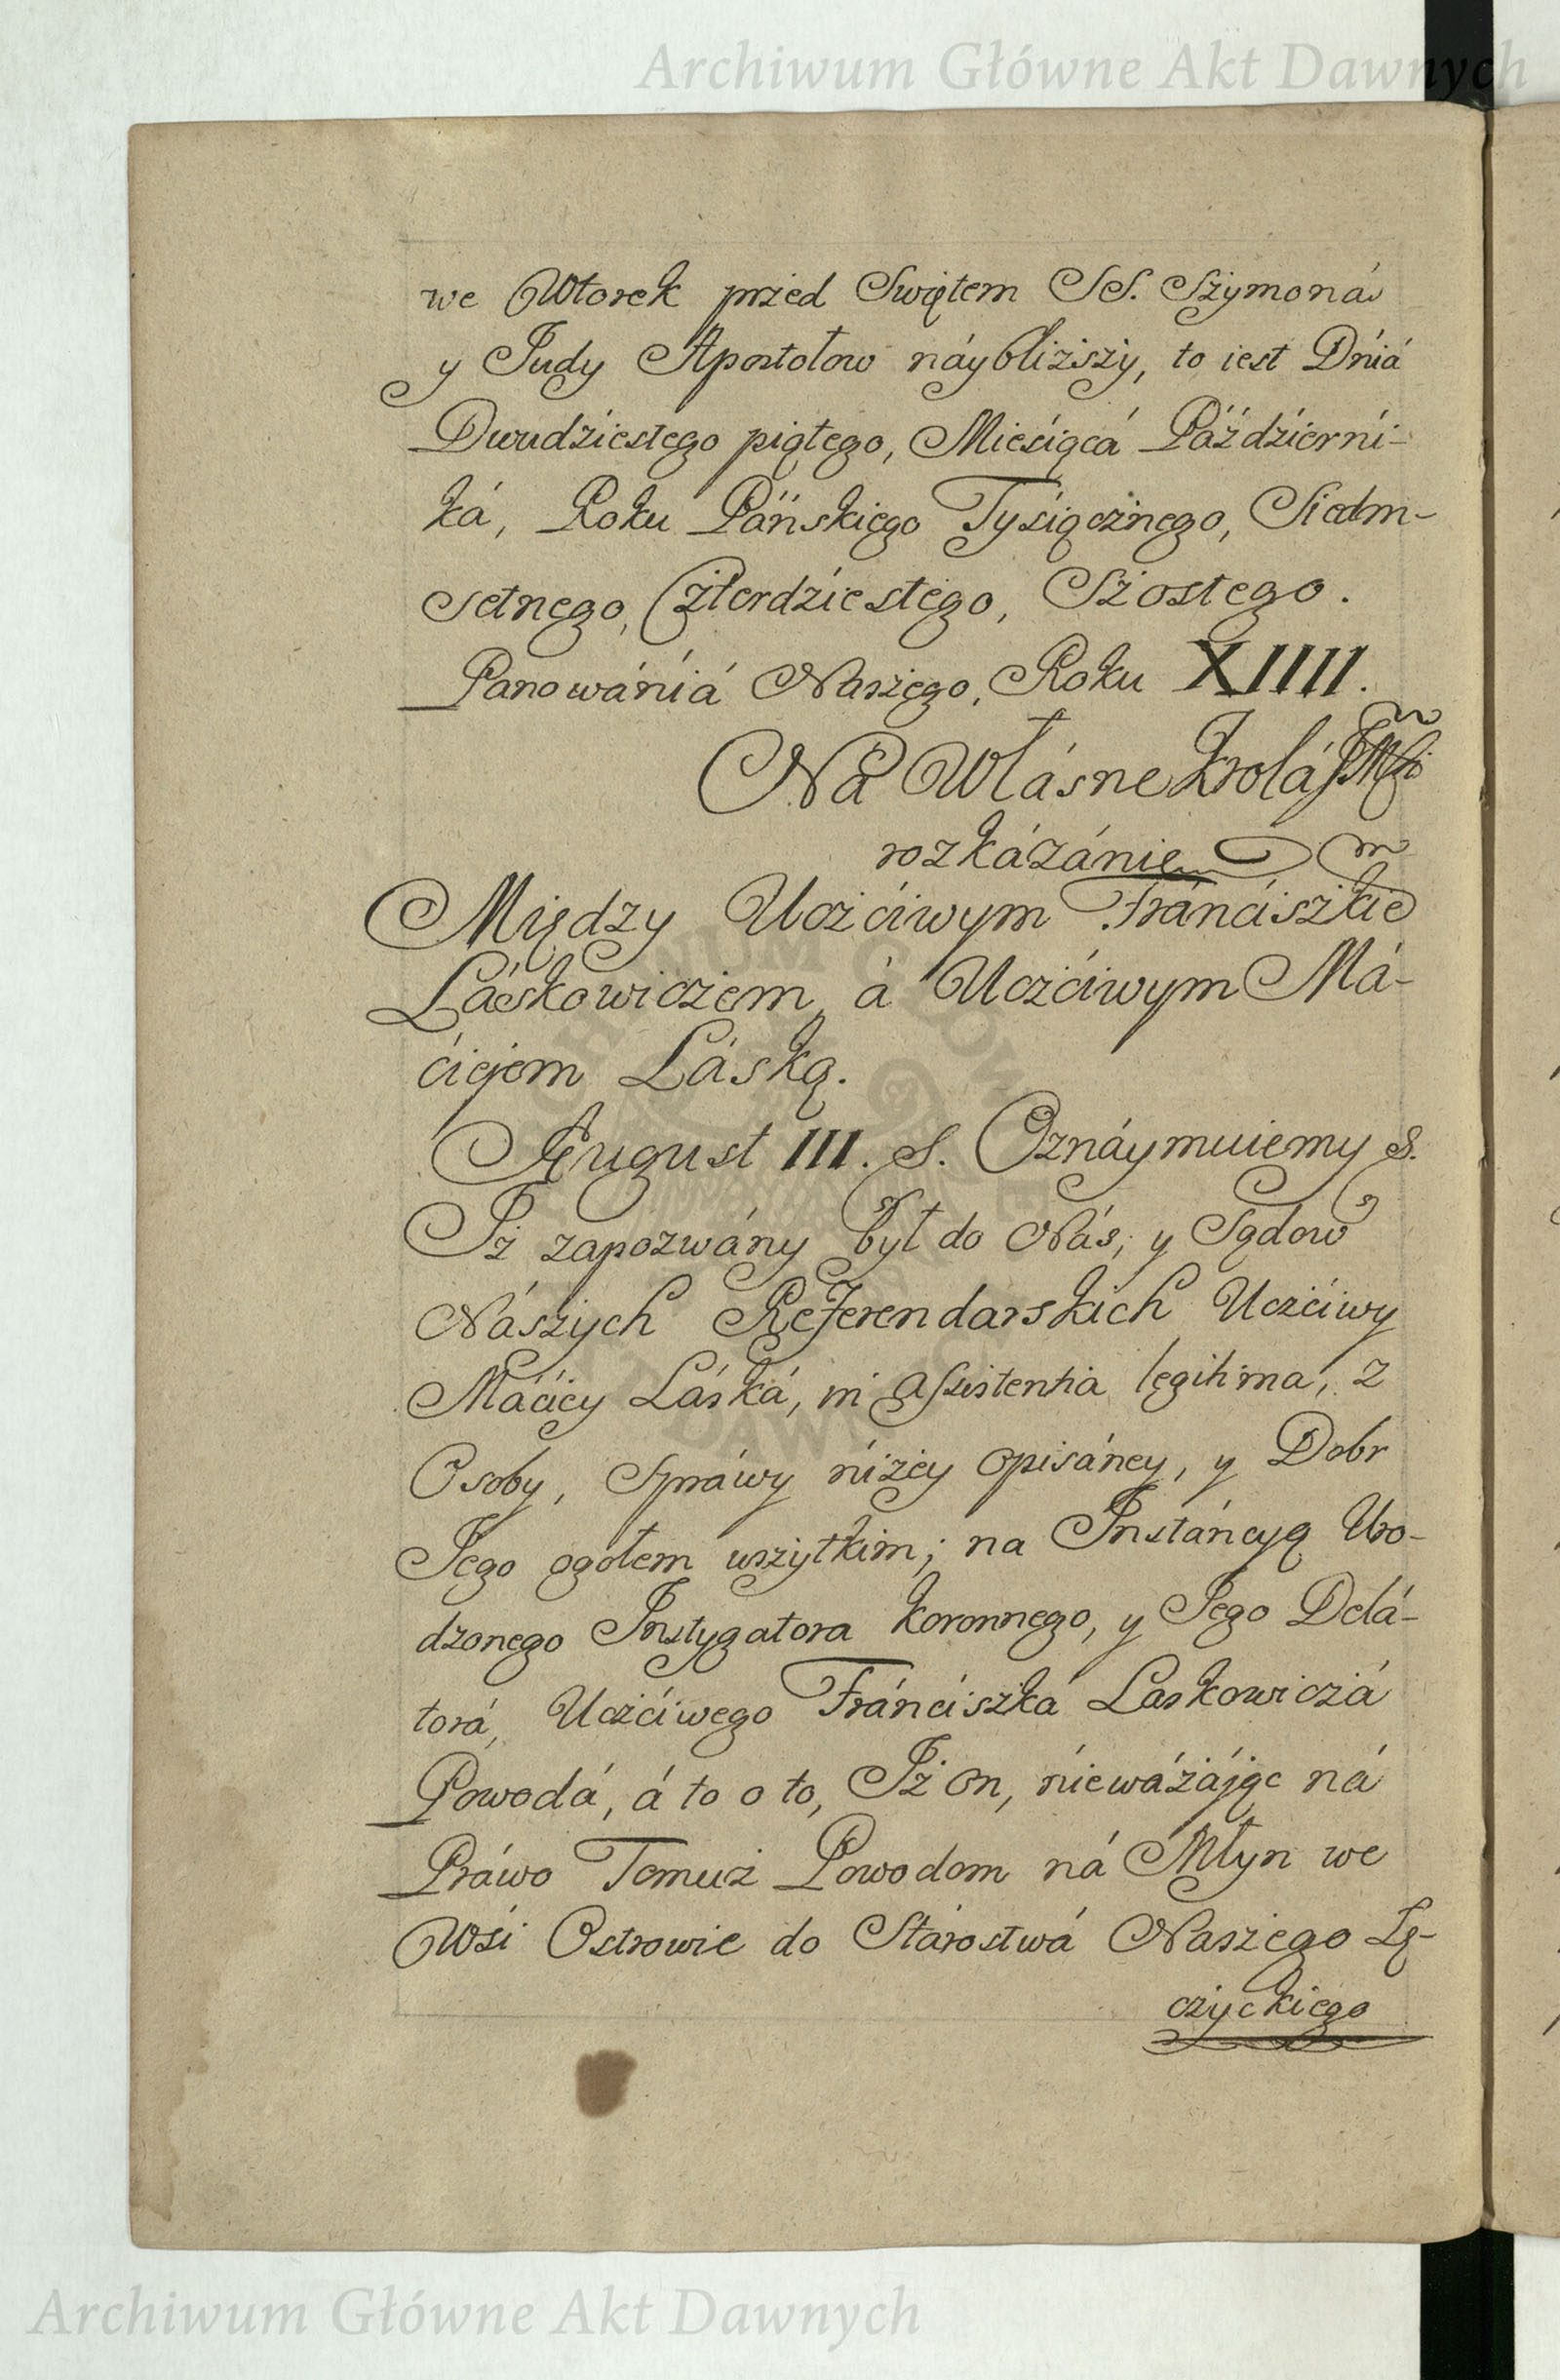 Archiwum Główne Akt Dawnych
we Wtorek przed Swiętem SS. Szymoná
y Judy Apostołow náyblizszy, to iest Dniá
Dwudziestego piątego, Miesiącá Páździerni-
ká, Roku Páńskiego Tysiącznego, Siedm-
setnego, Czterdziestego, Szostego.
Panowániá Naszego, Roku XIIII.
Ná Włásne Krolá JMSi
rozkázánie
Między Uczciwym Fránciszkie
Láskowiczem, á Uczciwym Má-
ciejem Láską.
August III. S. Oznáymuiemy S.
Iż zapozwány był do Nás, y Sądow
Nászych Referendarskich Uczciwy
Máciey Láská, in assistentia legitima, z
Osoby, Spráwy niżey opisáney, y Dobr
Jego ogołem wszytkim; na Instáncyą Uro-
dzonego Instygatora koronnego, y Jego Delá-
torá, Uczciwego Fránciszká Laskowiczá
Powodá, á to o to, Iż on, niewáżájąc ná
Práwo Temuż Powodom ná Młyn we
Wsi Ostrowie do Stárostwá Naszego Łę-
czyckiego
Archiwum Główne Akt Dawnych